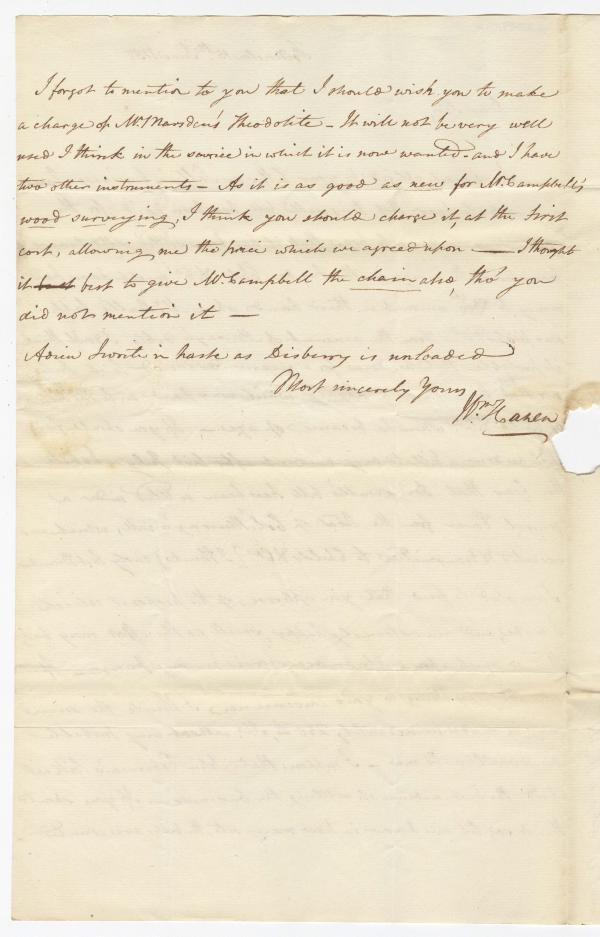 I forgot to mention to you that I should wish you to make
a charge of Mr. Marsden's Theodolite - It will not be very well
used I think in the service in which it is now wanted - and I have
two other instruments - As it is as good as new for Mr. Campbell's
wood surveying, I think you should charge it, at the first
cost, allowing me the price which we agreed upon — I thought
it best to give Mr. Campbell the chain also, tho' you
did not mention it —
Adieu I write in haste as Disberry is unloaded
Most sincerely Yours
Wm.